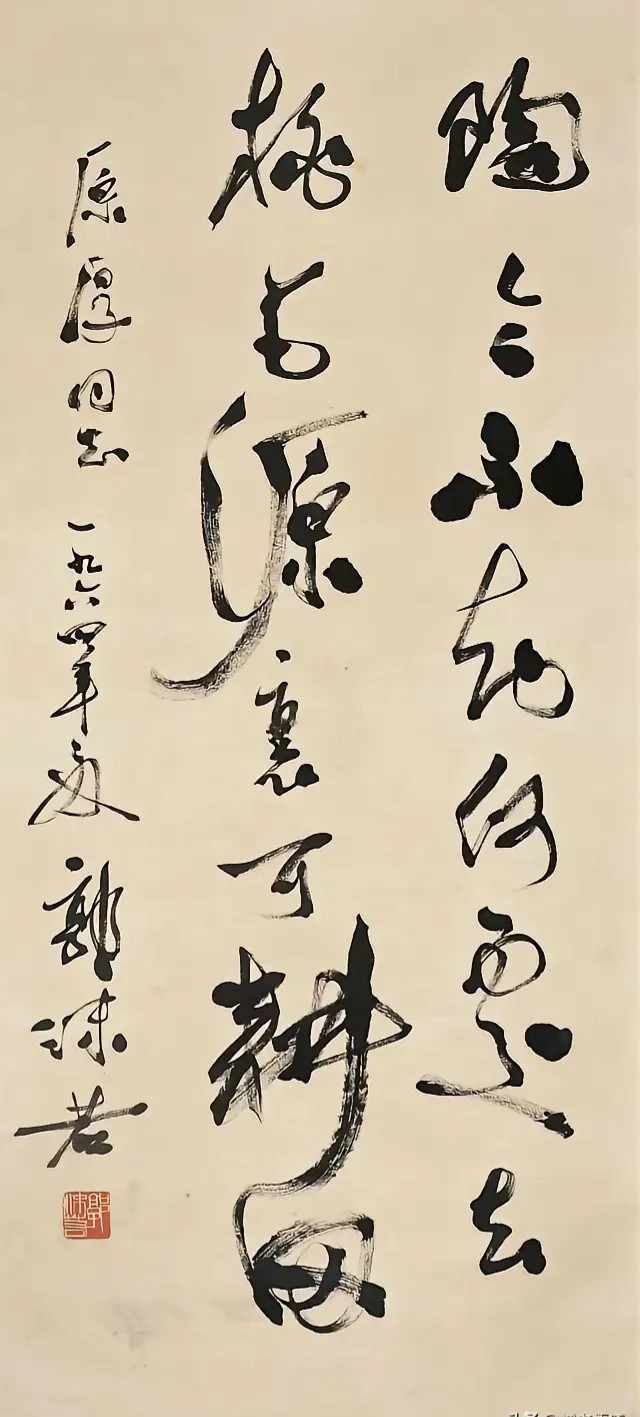 陶令不知何處去
桃花源裏可耕田
原厚同志 一九六四年夏 郭沫若
郭沫若